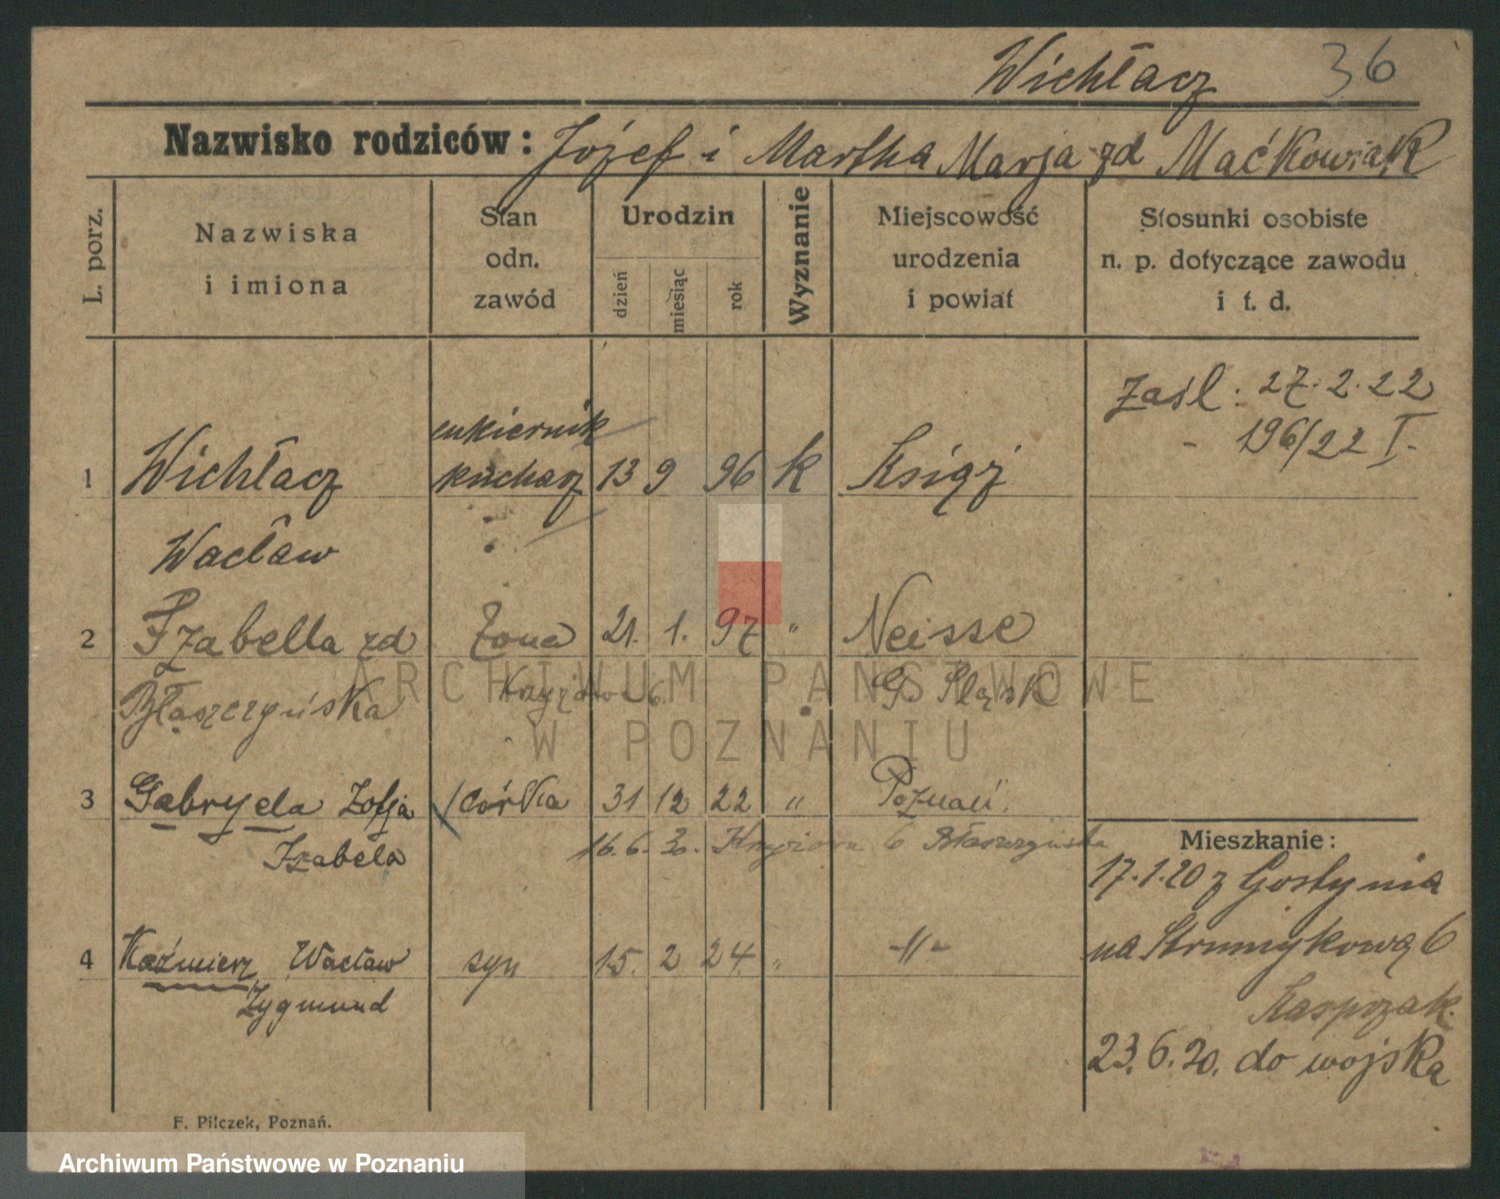 Wichłacz 36
Nazwisko rodziców: Józef i Martha Marja zd Maćkowiak
L. porz.
Nazwiska
i imiona
Stan
odn.
zawód
Urodzin
dzień
miesiąc
rok
Wyznanie
Miejscowość
urodzenia
i powiat
Stosunki osobiste
n. p. dotyczące zawodu
i t. d.
Zaśl: 27.2.22
- 196/22 I.
cukiernik
1 Wichłacz kucharz 13 9 96 k Książ
Wacław
2 Izabella zd Żona 21. 1. 97 " Neisse
Błaszczyńska Krzyżowa 6. G. Śląsk
3 Gabryela Zofja córka 31 12 22 " Poznań.
Izabela 16.6.20. Krzyżowa 6 Błaszczyńska
Mieszkanie:
17.1.20 z Gostynia
4 Kaźmierz Wacław syn 15. 2 24. " -"-
Zygmund
na Strumykową 6
Kasprzak.
23.6.20. do wojska
F. Pilczek, Poznań.
ARCHIWUM PAŃSTWOWE
W POZNANIU
Archiwum Państwowe w Poznaniu